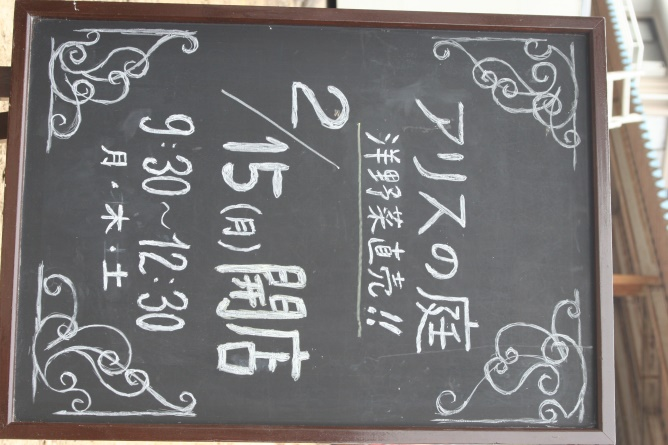 アリスの庭
洋野菜直売!!
2/15(月)開店
9:30~12:30
月・木・土